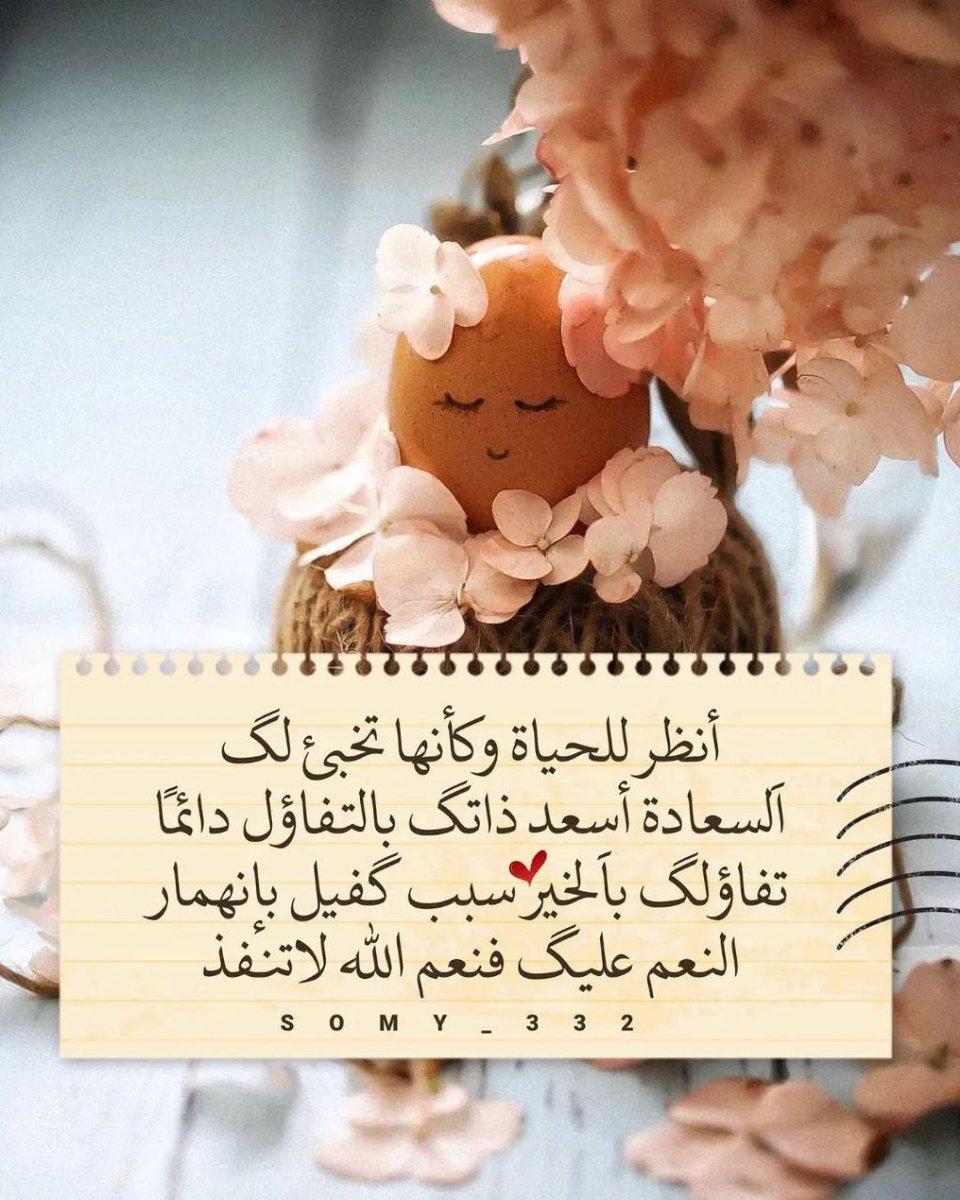 أنظر للحياة وكأنها تخبئ لگ
اَلسعادة أسعد ذاتگ بالتفاؤل دائمًا
تفاؤلگ باَلخير سبب گفيل بإنهمار
النعم عليگ فنعم الله لاتنفذ
SOMY_332